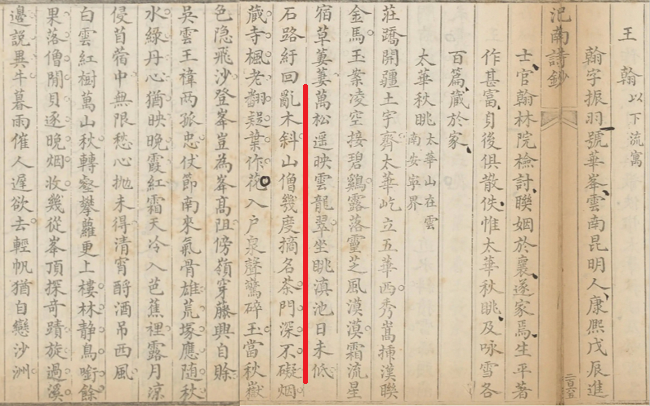 王 翰 以下流寓
翰字振羽號華峯雲南昆明人康熙戊辰進
南詩鈔
士官翰林院檢討聯姻於襄遂家焉生平著
作甚富身後俱散佚惟太華秋眺及咏雪各
百篇藏於家
太華秋眺 太華山在雲南安寧界
莊蹻開疆土宇齊太華屹立五華西秀嵩插漢聯
金馬玉案凌空接碧鷄露落靈芝風漠漠霜流星
宿草萋萋萬松遥映雲龍翠坐眺滇池日未低
石路紆回亂木斜山僧幾度摘名茶門深不礙烟
蔵寺楓老翻疑葉作花入户泉聲驚碎玉當秋嶽
色隐飛沙登峯豈為峯高阻傍嶺穿藤興自賒
吳雲王禕兩孤忠伏節南來氣骨雄荒塚應隨秋
水綠丹心猶映晚霞紅霜天冷入芭蕉裡露月凉
侵苜蓿中無限愁心抛未得清宵酹酒吊西風
白雲紅樹萬山秋轉磴攀蘿更上樓林静鳥啣餘
果落僧閒貝逐晚烟收幾從峯頂探奇蹟旋過溪
邊説異牛暮雨催人遲欲去輕帆猶自戀沙洲